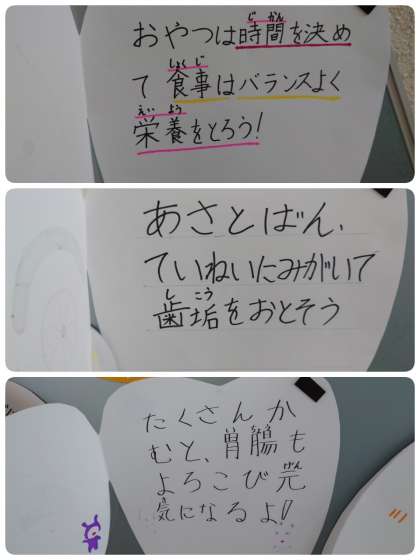 じ かん
おやつは時間を決め
しょく じ
て食事はバランスよく
えい よう
栄養をとろう!
あさとばん、
ていねいにみがいて
し こう
歯垢をおとそう
たくさんか
むと、胃腸も
げん
よろこび元
気になるよ!!